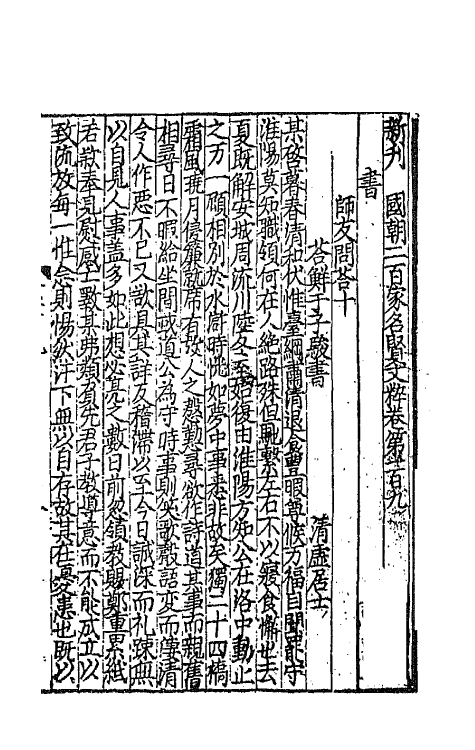 新刊　國朝二百家名賢文粹卷第一百九
書
師友問荅十
荅鮮于子駿書　清虛居士
某啓暮春清和伏惟臺綱肅清退食豐暇尊候万福自聞罷守
淮陽莫知職領何在人絶路殊但馳繫左右不以寢食懈也去
夏既解安城周流川陸冬至始復由淮陽方知公在洛中動止
之万一顧相別於水滸時恍如夢中事悉非故矣獨二十四橋
霜風曉月倚簾就席有故人之慇懃尋欲作詩道其事而親舊
相尋日不暇給坐間或道公為守時事則笑歌聲韶変而淒清
令人作惡不已又欲具其詳及稽滯以至今日誠深而礼踈無
以自見人事盖多如此想必亮之數日前忽領教賜鄭重累紙
若散奉見慰感〻數某弗類負先君子教導意而不能成立以
致流放每一惟念則惕然汗下無以自存故其在憂患也既以